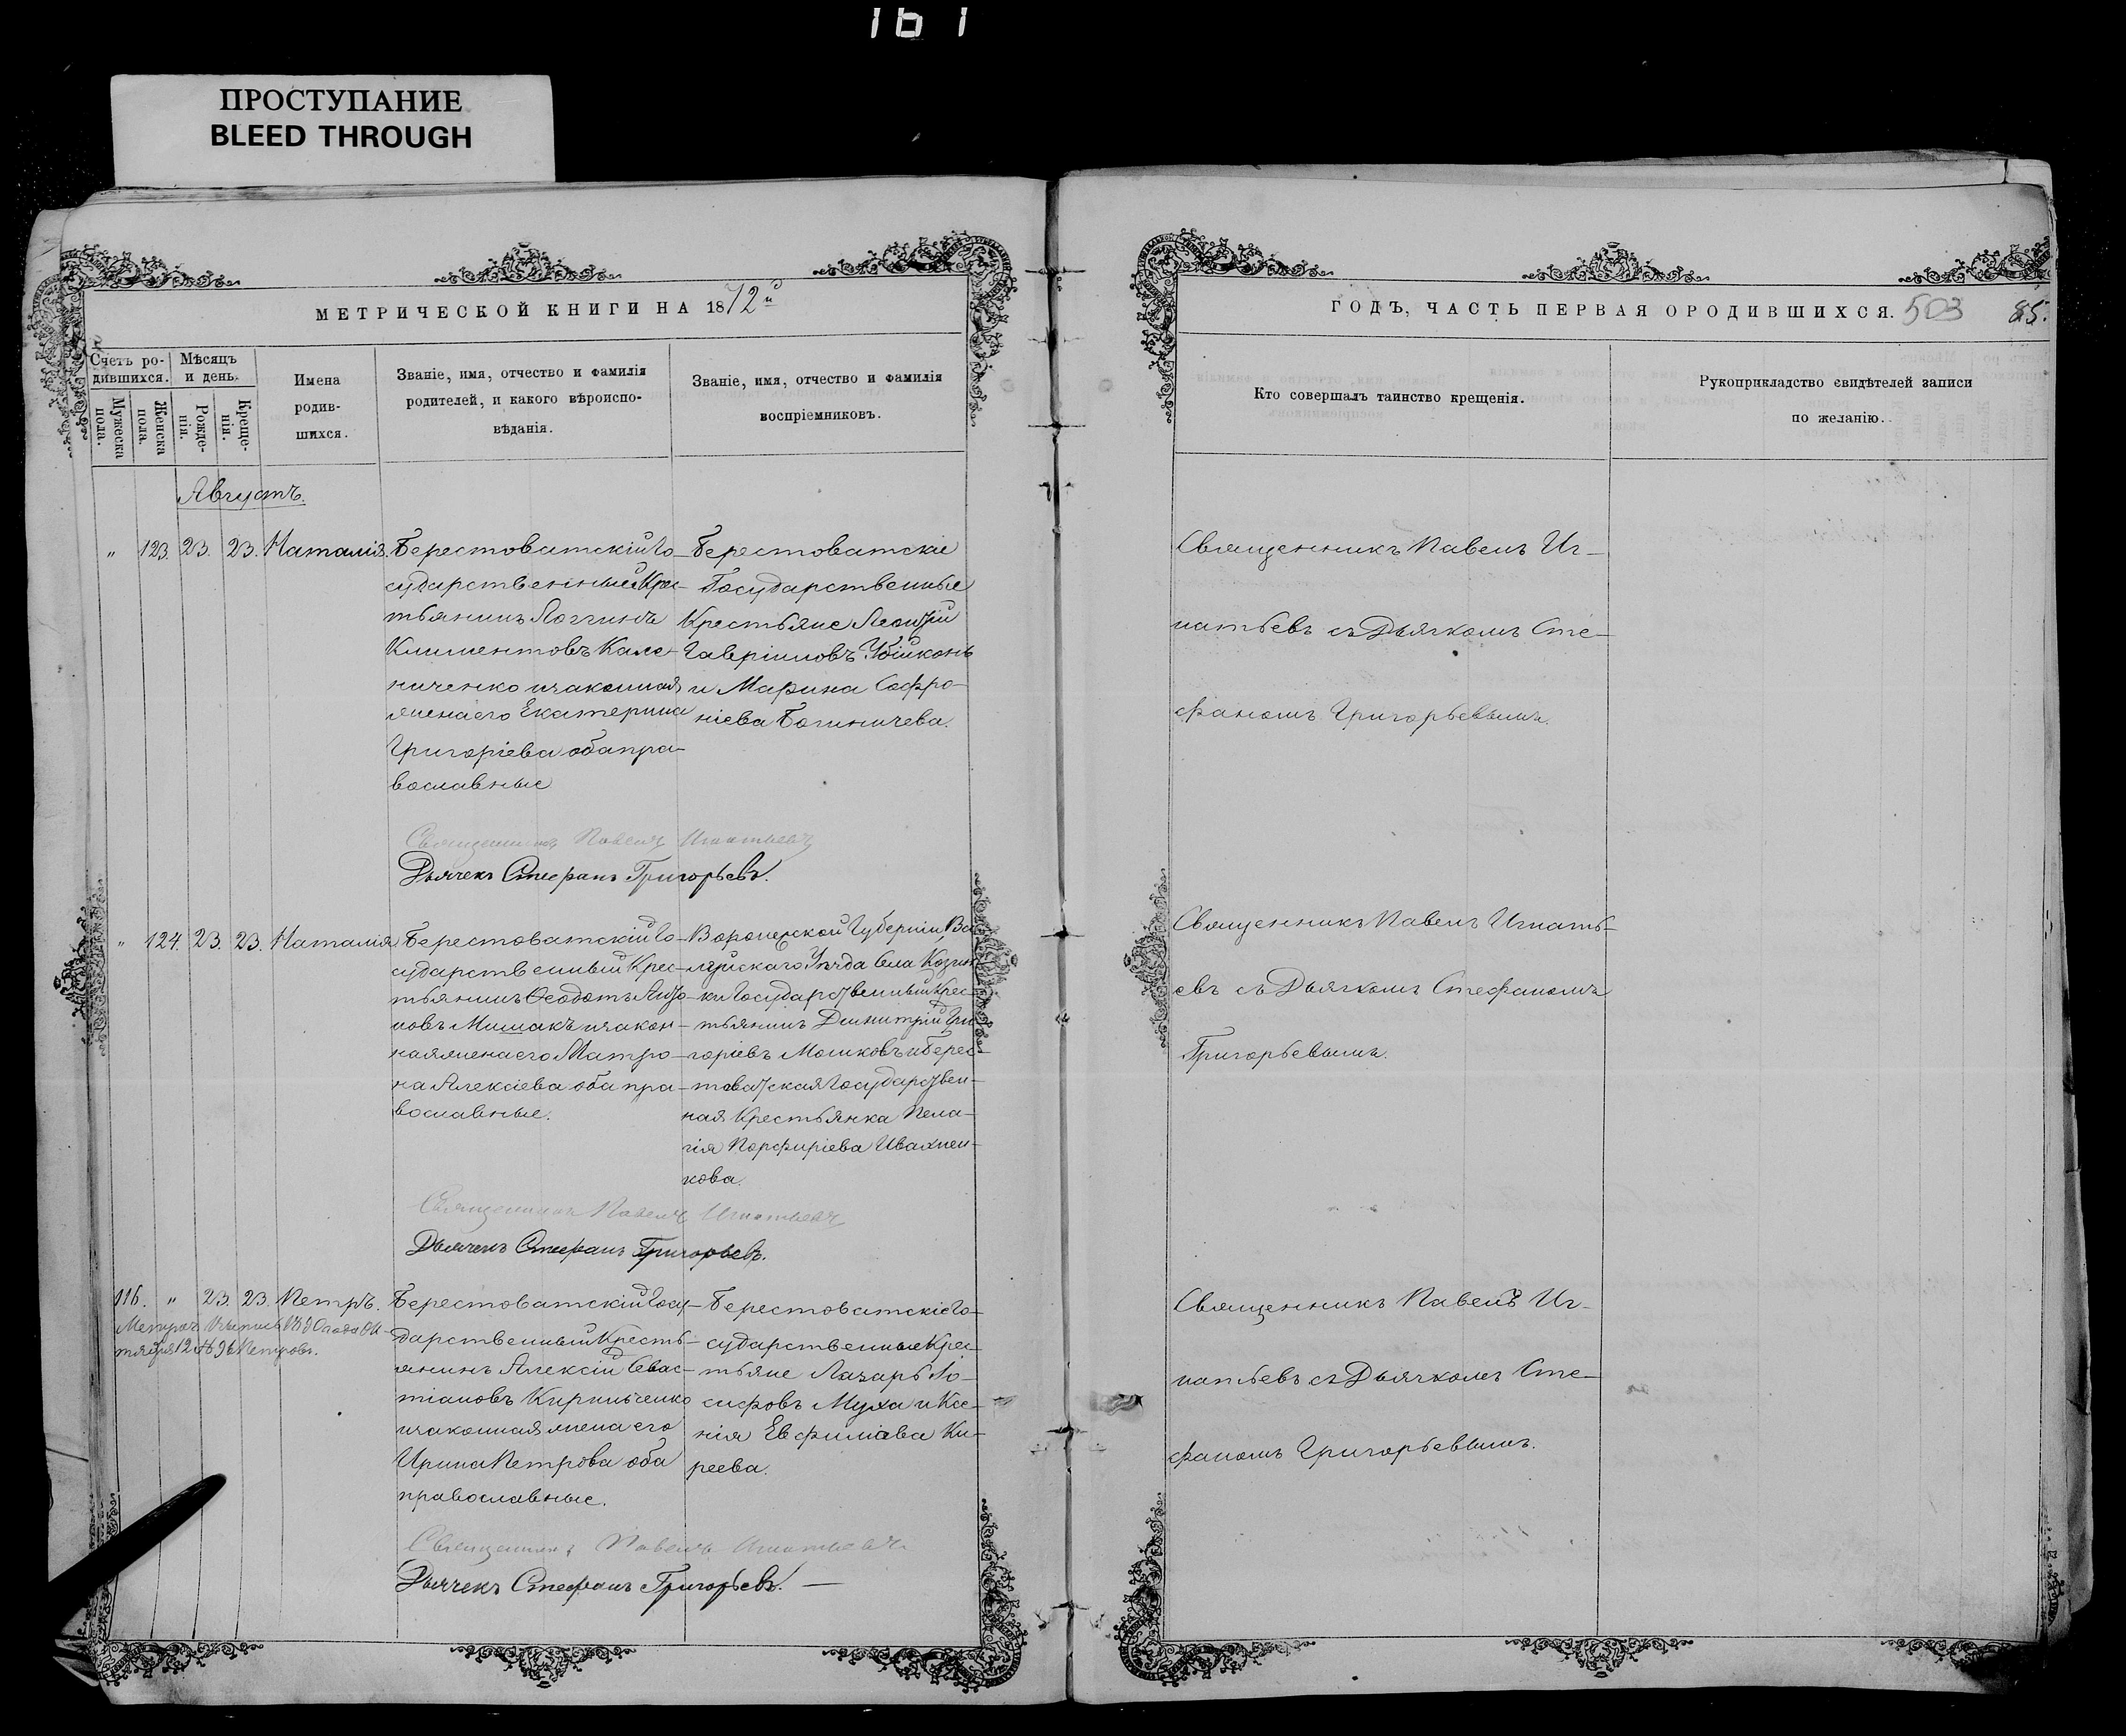 161
ПРОСТУПАНИЕ
BLEED THROUGH
МЕТРИЧЕСКОЙ КНИГИ НА 1872й
Счетъ ро-
дившихся.
Мѣсяцъ
и день.
Мужеска
пола.
Женска
пола.
Рожде-
нія.
Креще-
нія.
Имена
родив-
шихся.
Званіе, имя, отчество и фамилія
родителей, и какого вѣроиспо-
вѣданія.
Званіе, имя, отчество и фамилія
воспріемниковъ.
Августъ.
" 123. 23. 23. Наталія.
Берестоватскій Го-
сударственный Крес-
тьянинъ Логгинъ
Климентовъ Кале-
ниченко и законная
жена его Екатерина
Григоріева оба пра-
вославные
Берестоватскіе
Государственные
Крестьяне Леонтій
Гавріиловъ Убійконь
и Марина Софро-
ніева Богиничева.
Священникъ Павелъ Игнатьевъ
Дьячекъ Стефанъ Григорьевъ.
" 124. 23. 23. Наталія
Берестоватскій Го-
сударственный Крес-
тьянинъ Ѳеодотъ Анто-
новъ Мишакъ и закон-
ная жена его Матро-
на Алексіева оба пра-
вославные.
Воронежской Губерніи, Ва-
луйскаго Уѣзда Села Козин-
ки Государственный Крес-
тьянинъ Димитрій Гри-
горіевъ Мошковъ и Берес-
товатская Государствен-
ная Крестьянка Пела-
гія Порфиріева Ивахнен-
кова.
Священникъ Павелъ Игнатьевъ
Дьячекъ Стефанъ Григорьевъ.
116. " 23. 23. Петръ.
Берестоватскій Госу-
дарственный Кресть-
янинъ Алексій Севас-
тіановъ Кирпиченко
и законная жена его
Ирина Петрова оба
православные.
Берестоватскіе Го-
сударственные Крес-
тьяне Лазарь Іо-
сифовъ Муха и Ксе-
нія Евфиміева Ки-
реева.
Священникъ Павелъ Игнатьевъ
Дьячекъ Стефанъ Григорьевъ.
ГОДЪ, ЧАСТЬ ПЕРВАЯ ОРОДИВШИХСЯ. 503 85.
Кто совершалъ таинство крещенія.
Рукоприкладство свидѣтелей записи
по желанію.
Священникъ Павелъ Иг-
натьевъ съ Дьячкомъ Сте-
фаномъ Григорьевымъ.
Священникъ Павелъ Игнать-
евъ съ Дьячкомъ Стефаномъ
Григорьевымъ.
Священникъ Павелъ Иг-
натьевъ съ Дьячкомъ Сте-
фаномъ Григорьевымъ.